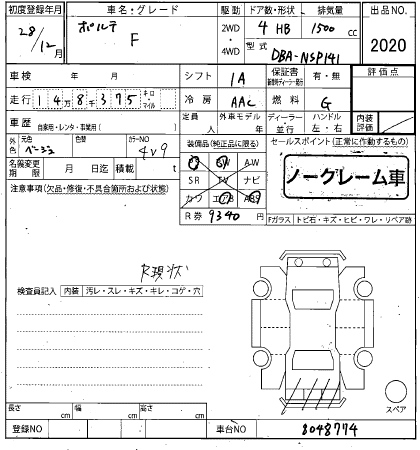 初度登録年月 車名・グレード 駆動 ドア数・形状 排気量 出品NO.
28/12月 ポルテ F 2WD・4WD 4 HB 1500 cc 2020
型式 DBA-NSP141
車検 年 月 シフト IA 保証書 有・無 評価点
走行 148千375 キロ マイル 冷房 AAC 燃料 G
車歴 自家用・レンタ・事業用( ) 定員 人 外車モデル 年 ディーラー・並行 ハンドル 左・右 内装評価
外色 元色 ベージュ 色替 カラーNO 4V9 装備品(純正品に限る) セールスポイント(正常に作動するもの)
名義変更期限 月 日迄 積載 t AW
SR TV ナビ
ノークレーム車
注意事項(欠品・修復・不具合箇所および状態) カワ
R券 9340 円 Fガラス トビ石・キズ・ヒビ・ワレ・リペア跡
R現状
検査員記入 内装 汚レ・スレ・キズ・キレ・コゲ・穴
スペア
長さ cm 幅 cm 高さ cm
登録NO 車台NO 8048774